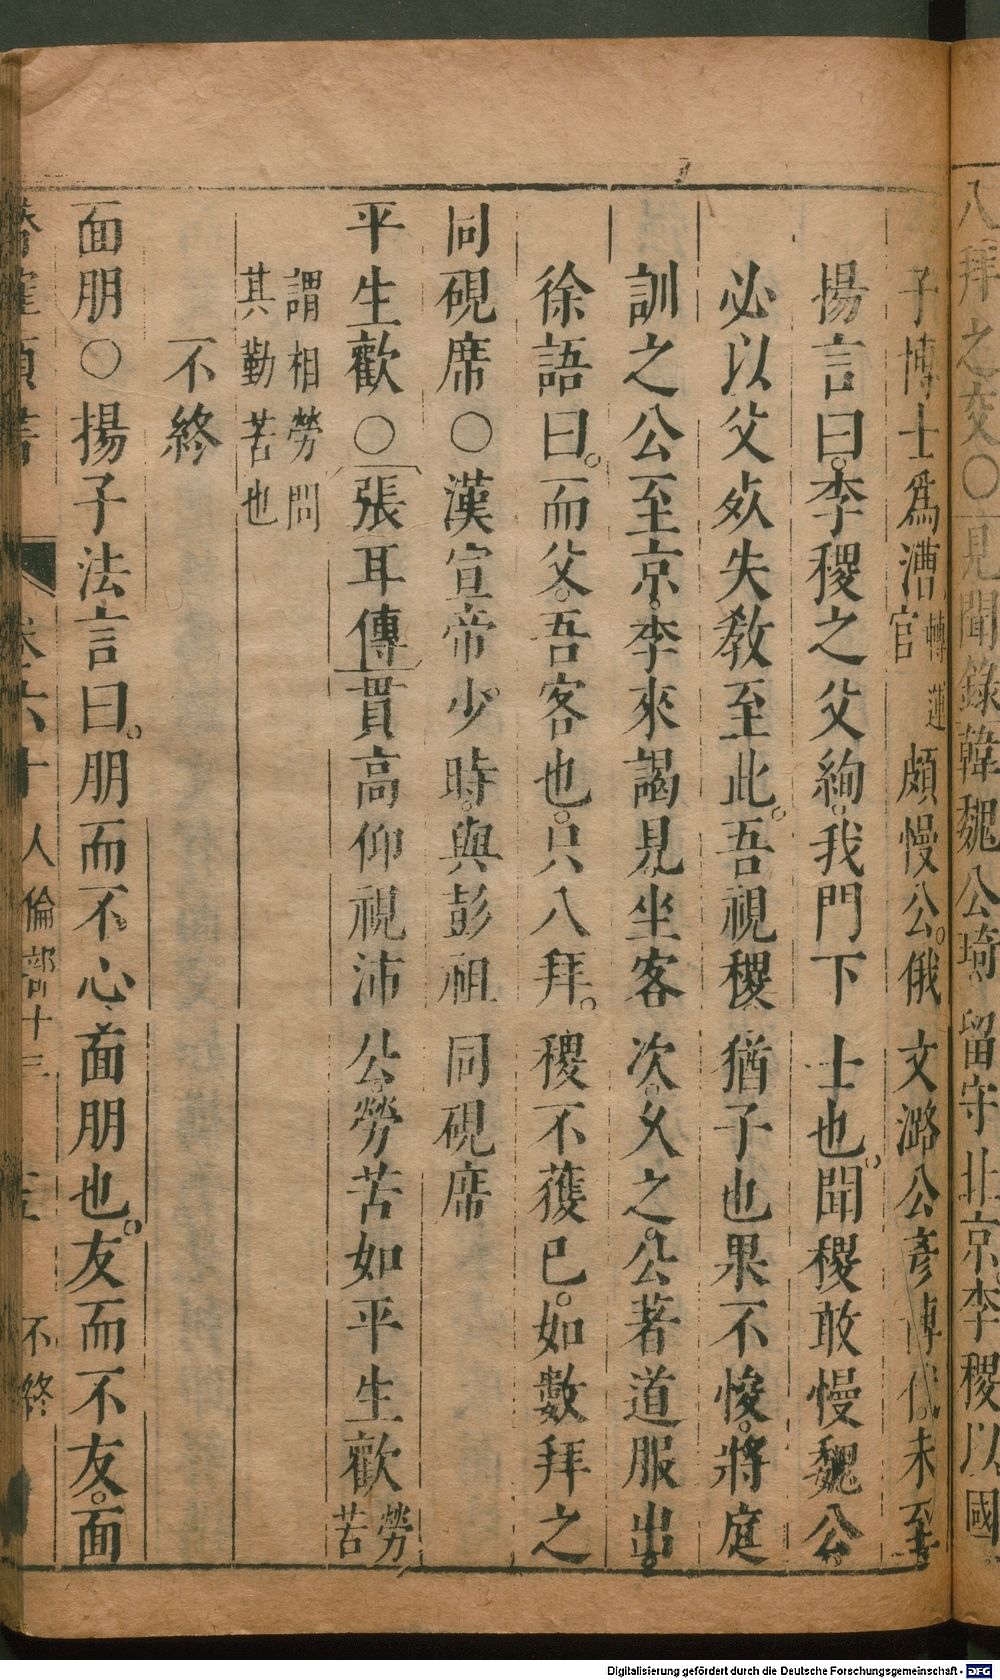 八拜之交○見聞錄韓魏公琦留守北京李稷以國
子博士爲漕轉運官頗慢公俄文潞公彥博代未至
揚言曰李稷之父絢我門下士也聞稷敢慢魏公
必以父㱙失教至此吾視稷猶子也果不悛將庭
訓之公至京李來謁見坐客次久之公著道服出
徐語曰而父吾客也只八拜稷不獲已如數拜之
同硯席○漢宣帝少時與彭祖同硯席
平生歡○張耳傳貫高仰視沛公勞苦如平生歡勞苦
謂相勞問其勤苦也
不終
面朋○揚子法言曰朋而不心面朋也友而不友面
卷六十 人倫部十三 不終
Digitalisierung gefördert durch die Deutsche Forschungsgemeinschaft - DFG